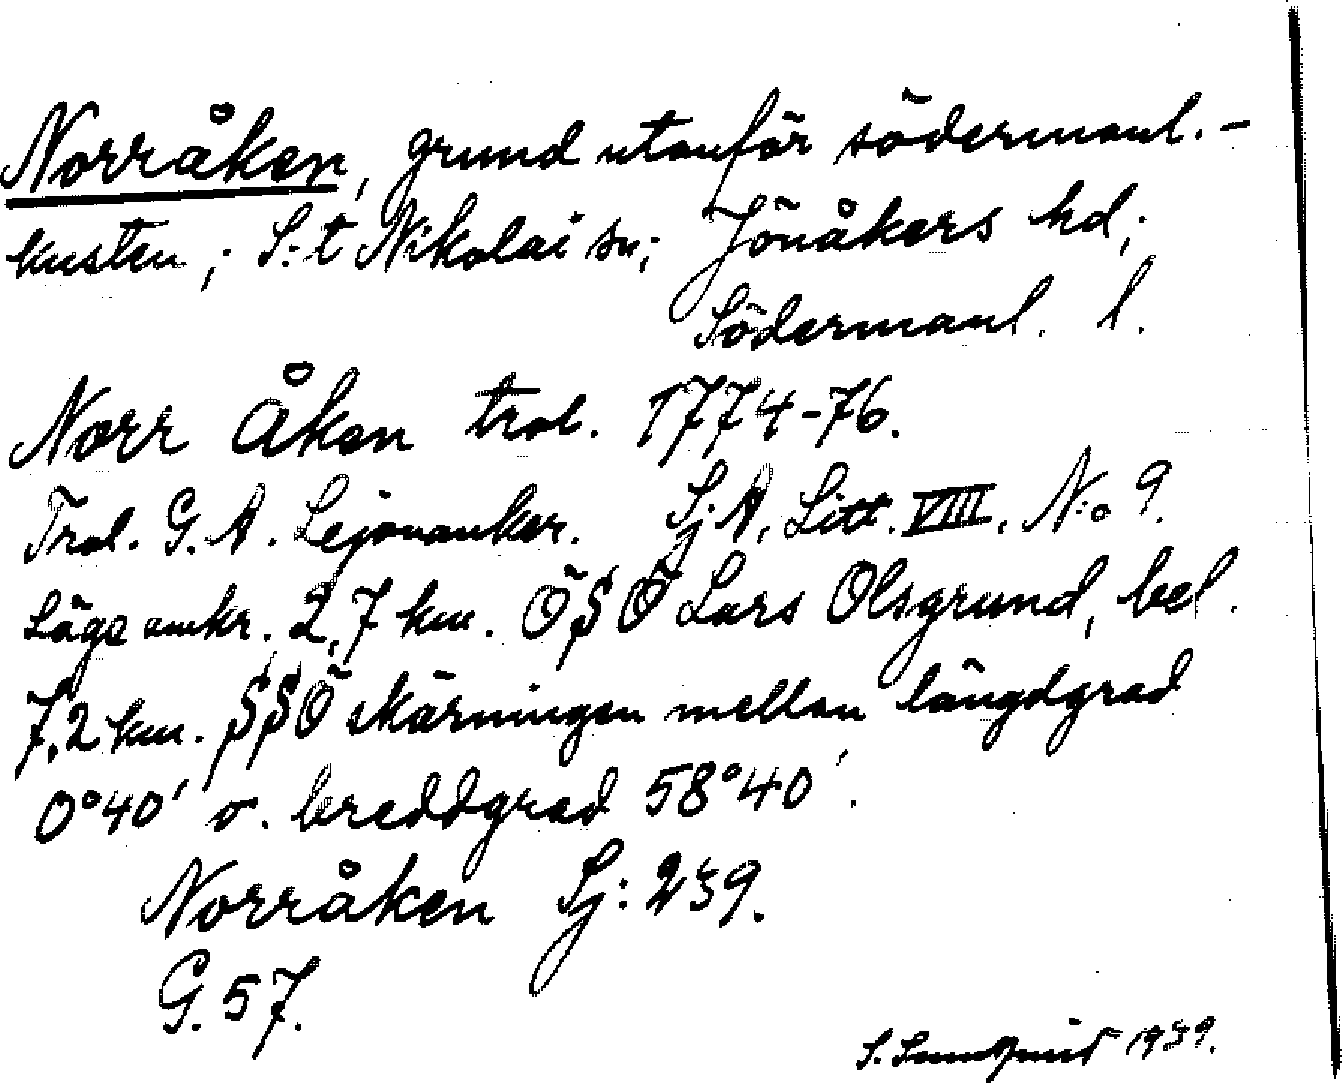 Norråken, grund utanför södermanl.-
kusten; S:t Nikolai sn; Jönåkers hd;
Södermanl. l.
Norr Åken trol. 1774-76.
Trol. G. A. Lejonanker. Sj. A. Litt. VIIII. N:o 9.
Läge omkr. 2,7 km. ÖSÖ Lars Olsgrund, bel.
7,2 km. SSÖ skärningen mellan längdgrad
0°40' o. breddgrad 58°40'.
Norråken Sj: 239.
G. 57.
S. 1939.